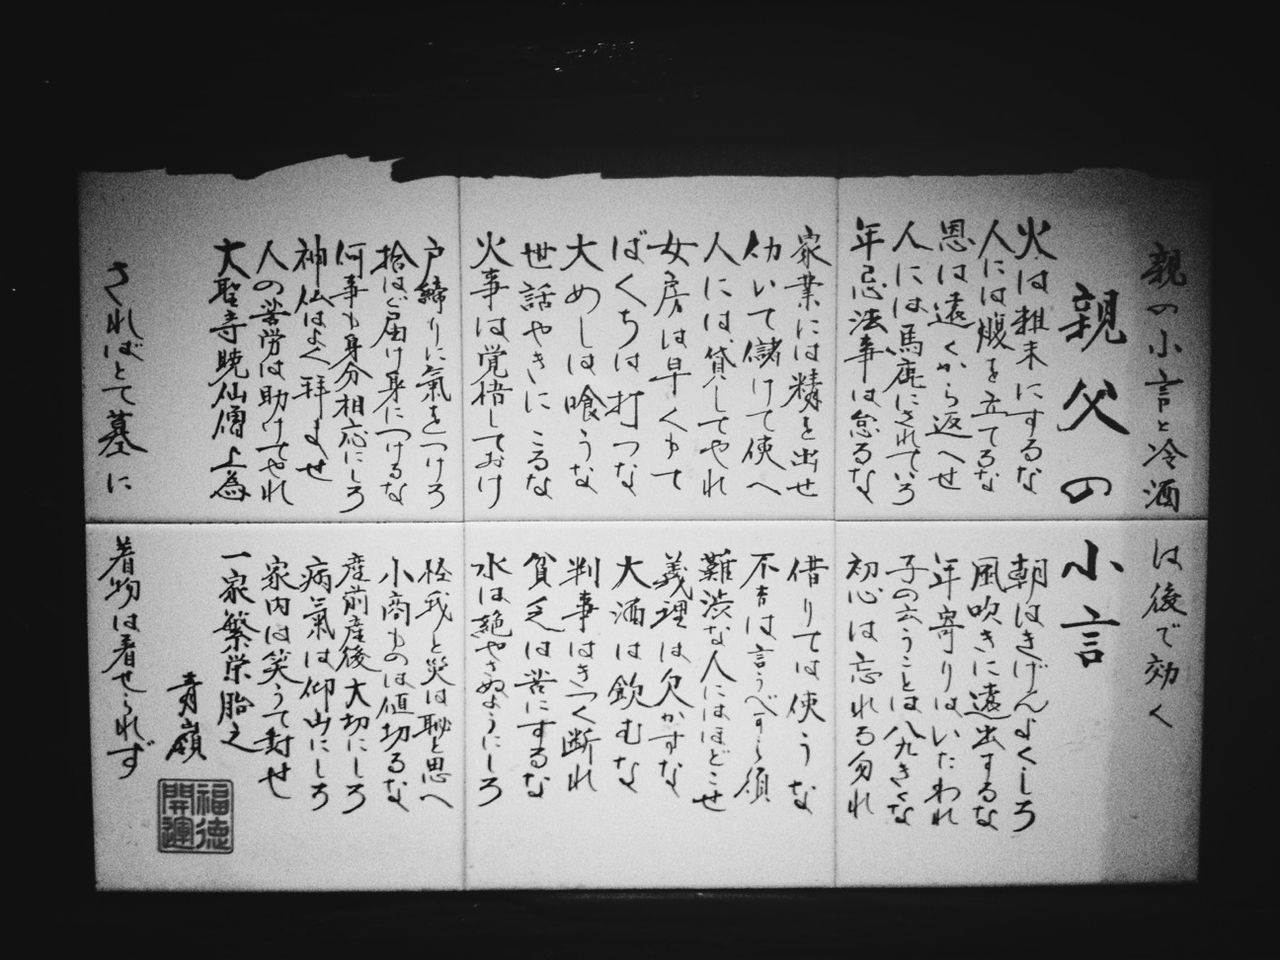 親の小言と冷酒は後で効く
親父の小言
火は粗末にするな
朝はきげんよくしろ
人には腹を立てるな
風吹きに遠出するな
恩は遠くから返へせ
年寄りはいたわれ
人には馬鹿にされていろ
子の云うことは八九きくな
年忌法事は怠るな
初心は忘れる勿れ
家業には精を出せ
借りては使うな
仂いて儲けて使へ
不吉は言うべ
人には貸してやれ
難渋な人にはほどこせ
女房は早くもて
義理は欠かすな
ばくちは打つな
大酒は飲むな
大めしは喰うな
判事はきつく断れ
世話やきにこるな
貧乏は苦にするな
火事は覚悟しておけ
水は絶やさぬようにしろ
戸締りに氣をつけろ
怪我と災は恥と思へ
拾はゞ届け身につけるな
小商ものは値切るな
何事も身分相応にしろ
産前産後大切にしろ
神仏はよく拝ませ
病氣は仰山にしろ
人の苦労は助けてやれ
家内は笑うて
大聖寺暁仙僧上為
一家繁栄胎之
青嶺
福徳
開運
さればとて墓に着物は着せられず